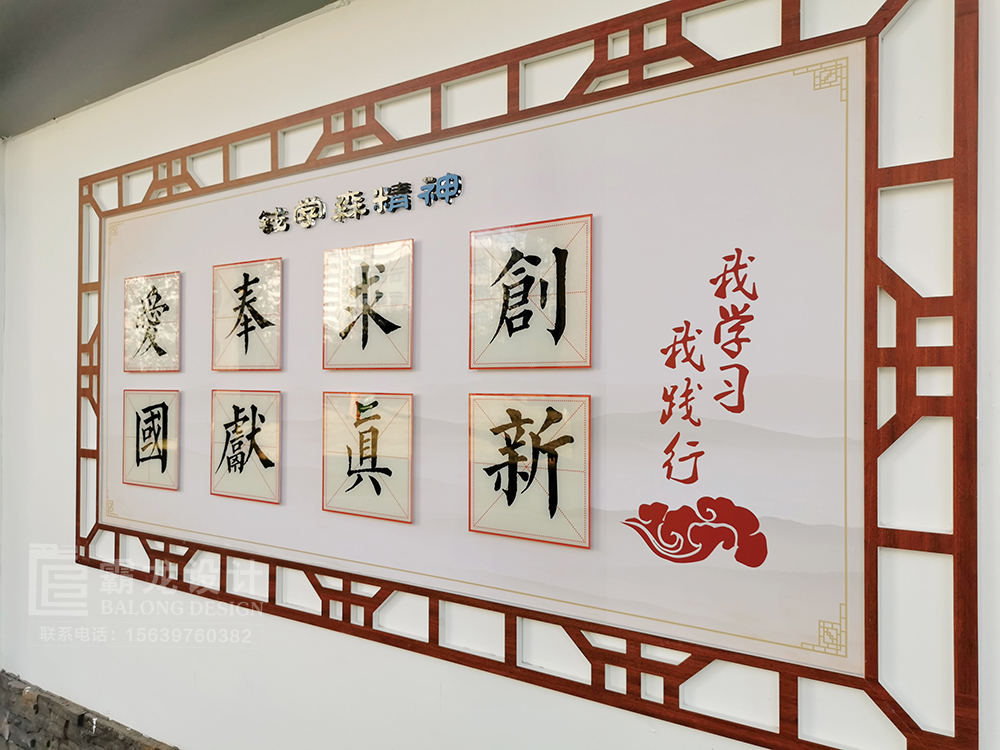 钱学森精神
愛 奉 求 創
國 獻 真 新
我学习
我践行
霸龙设计
BALONG DESIGN
联系电话：15639760382